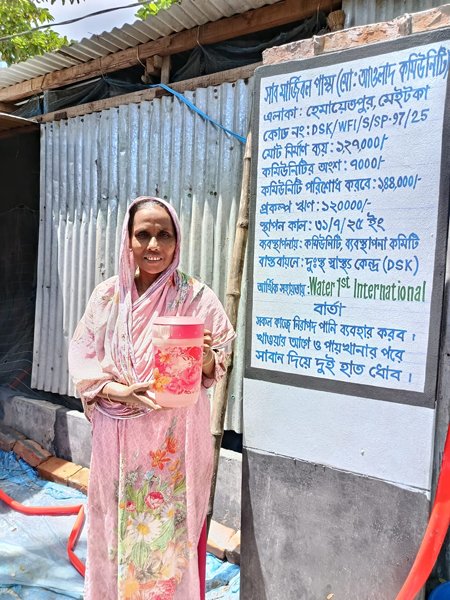 সাব মার্জিবল পাম্প (মো: আওলাদ কমিউনিটি)
এলাকা: হেমায়েতপুর, মেইটকা
কোড নং: DSK/WFI/S/SP-97/25
মোট নির্মাণ ব্যয়: ১২৭,০০০/-
কমিউনিটির অংশ: ৭০০০/-
কমিউনিটি পরিশোধ করবে: ১৪৪,০০০/-
প্রকল্প ঋণ: ১২০০০০/-
স্থাপন কাল: ৩১/৭/২৫ ইং
ব্যবস্থাপনায়: কমিউনিটি ব্যবস্থাপনা কমিটি
বাস্তবায়নে: দুঃস্থ স্বাস্থ্য কেন্দ্র (DSK)
আর্থিক সহায়তায়: Water 1st International
বার্তা
সকল কাজে নিরাপদ পানি ব্যবহার করব।
খাওয়ার আগে ও পায়খানার পরে
সাবান দিয়ে দুই হাত ধোব।